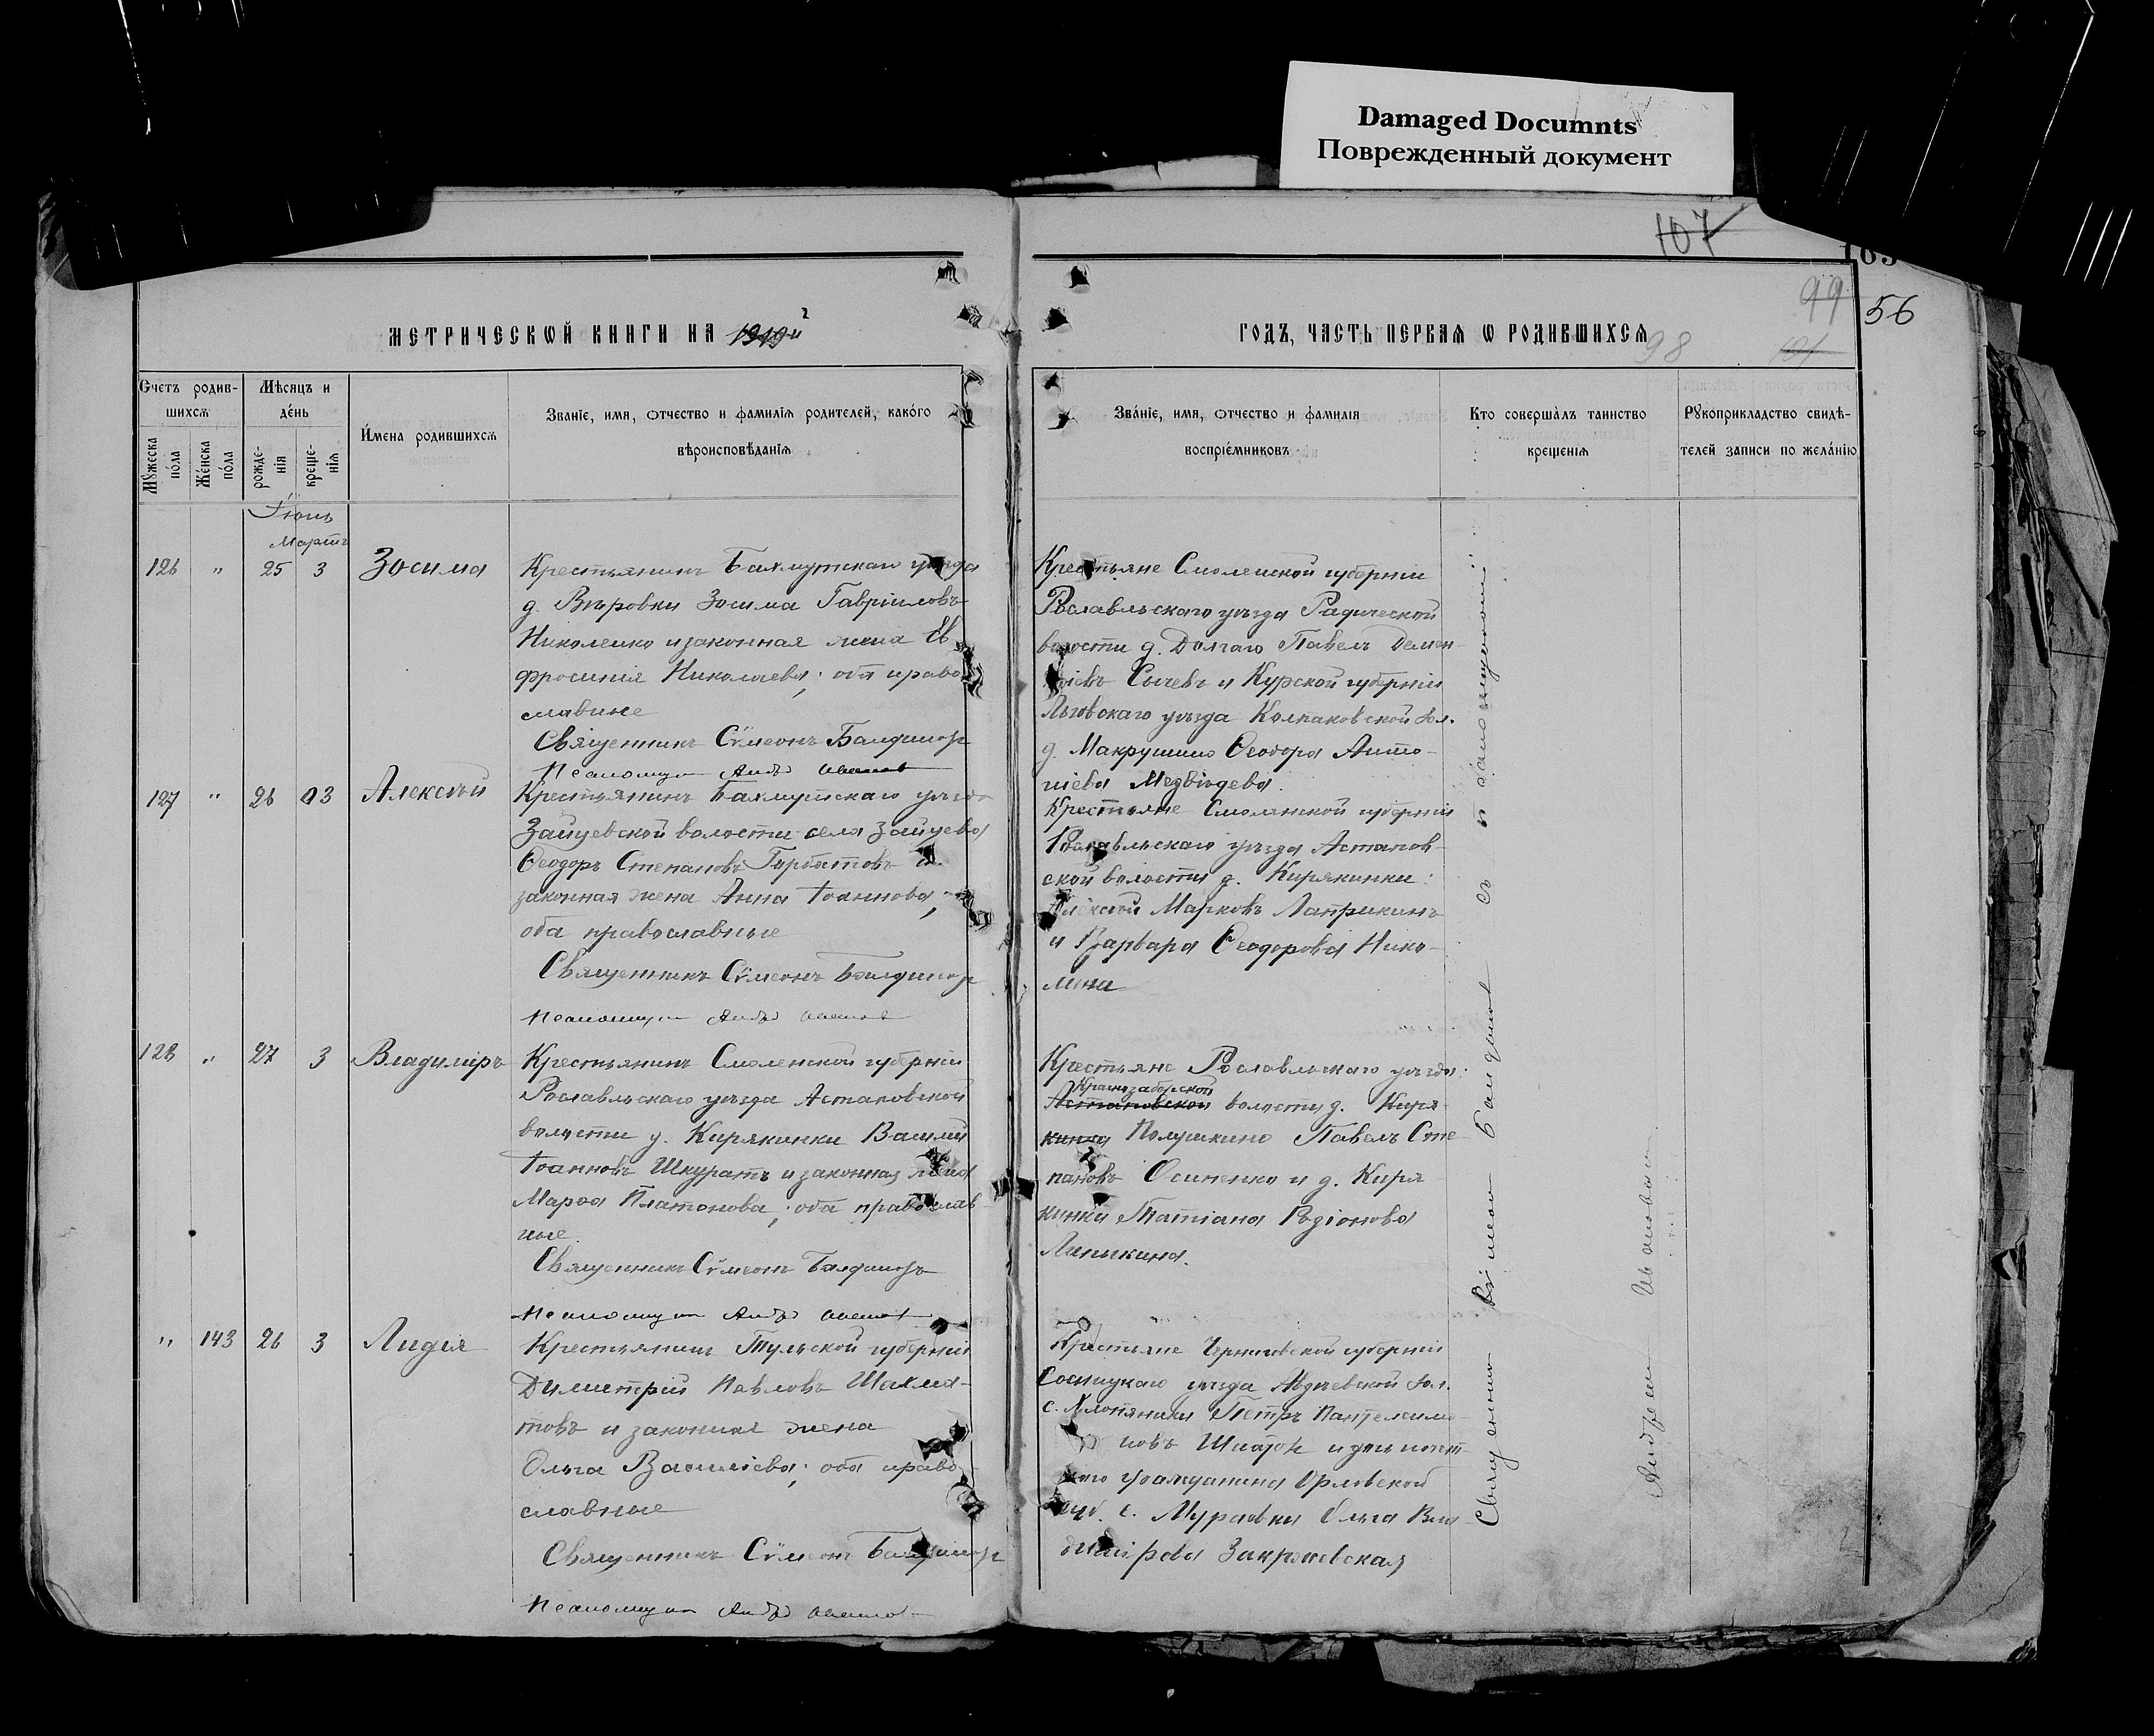 Damaged Documnts
Поврежденный документ
107
99
56
98
МЕТРИЧЕСКОЙ КНИГИ НА
ГОДЪ, ЧАСТЬ ПЕРВАЯ Ѡ РОДИВШИХСЯ
Счетъ родившихся
Мужеска пола
Женска пола
Мѣсяцъ и день
рожденія
крещенія
Имена родившихся
Званіе, имя, отчество и фамилія родителей, какого
вѣроисповѣданія
Званіе, имя, отчество и фамилія
воспріемниковъ
Кто совершалъ таинство
крещенія
Рукоприкладство свидѣ-
телей записи по желанію
Мартъ
126 " 25 3 Зосима
Крестьянинъ Бахмутскаго уѣзда
д. Вѣровки Зосима Гавріиловъ
Николенко и законная жена Ев
фросинія Николаева; оба право
славные
Священникъ Сѵмеонъ
Псаломщик
Крестьяне Смоленской губерніи
Рославльскаго уѣзда Радической
волости д. Долгаго Павелъ Демен-
тіевъ Сычевъ и Курской губерніи
Льговскаго уѣзда Колпаковской вол.
д. Макрушино Ѳеодора Анто-
ніева Медвѣдева.
127 " 26 3 Алексѣй
Крестьянинъ Бахмутскаго уѣзда
Зайцевской волости села Зайцева
Ѳеодоръ Степановъ Горбатовъ и
законная жена Анна Іоаннова,
оба православные
Священникъ Сѵмеонъ
Псаломщик
Крестьяне Смоленской губерніи
Рославльскаго уѣзда Астапов-
ской волости д. Кирякинки
Алексѣй Марковъ Лапрекинъ
и Варвара Ѳеодорова Нико-
лина
128 " 27 3 Владиміръ
Крестьянинъ Смоленской губерніи
Рославльскаго уѣзда Астаповской
волости д. Кирякинки Василій
Іоанновъ Шкуратъ и законная жена
Марѳа Платонова; оба православ-
ные.
Священникъ Сѵмеонъ
Псаломщик
Крестьяне Рославльскаго уѣзда
Краснозаборской
Астаповской волости д. Киря-
кинка Полушкино Павелъ Сте-
пановъ Осиненко и д. Киря-
кинки Татіана Родіонова
" 143 26 3 Лидія
Крестьянинъ Тульской губерніи
Димитрій Павловъ Шахма-
товъ и законная жена
Ольга Василіева; оба право-
славные
Священникъ Сѵмеонъ
Псаломщик
Крестьяне Черниговской губерніи
Сосницкаго уѣзда Авдѣевской вол.
с. Хлопяники Петръ Пантелеимо-
новъ
гражданина Орловской
губ. с. Муравки Ольга Вла-
димірова Закржевская
Священникъ Сѵмеонъ съ псаломщикомъ
Андреем Ивановым